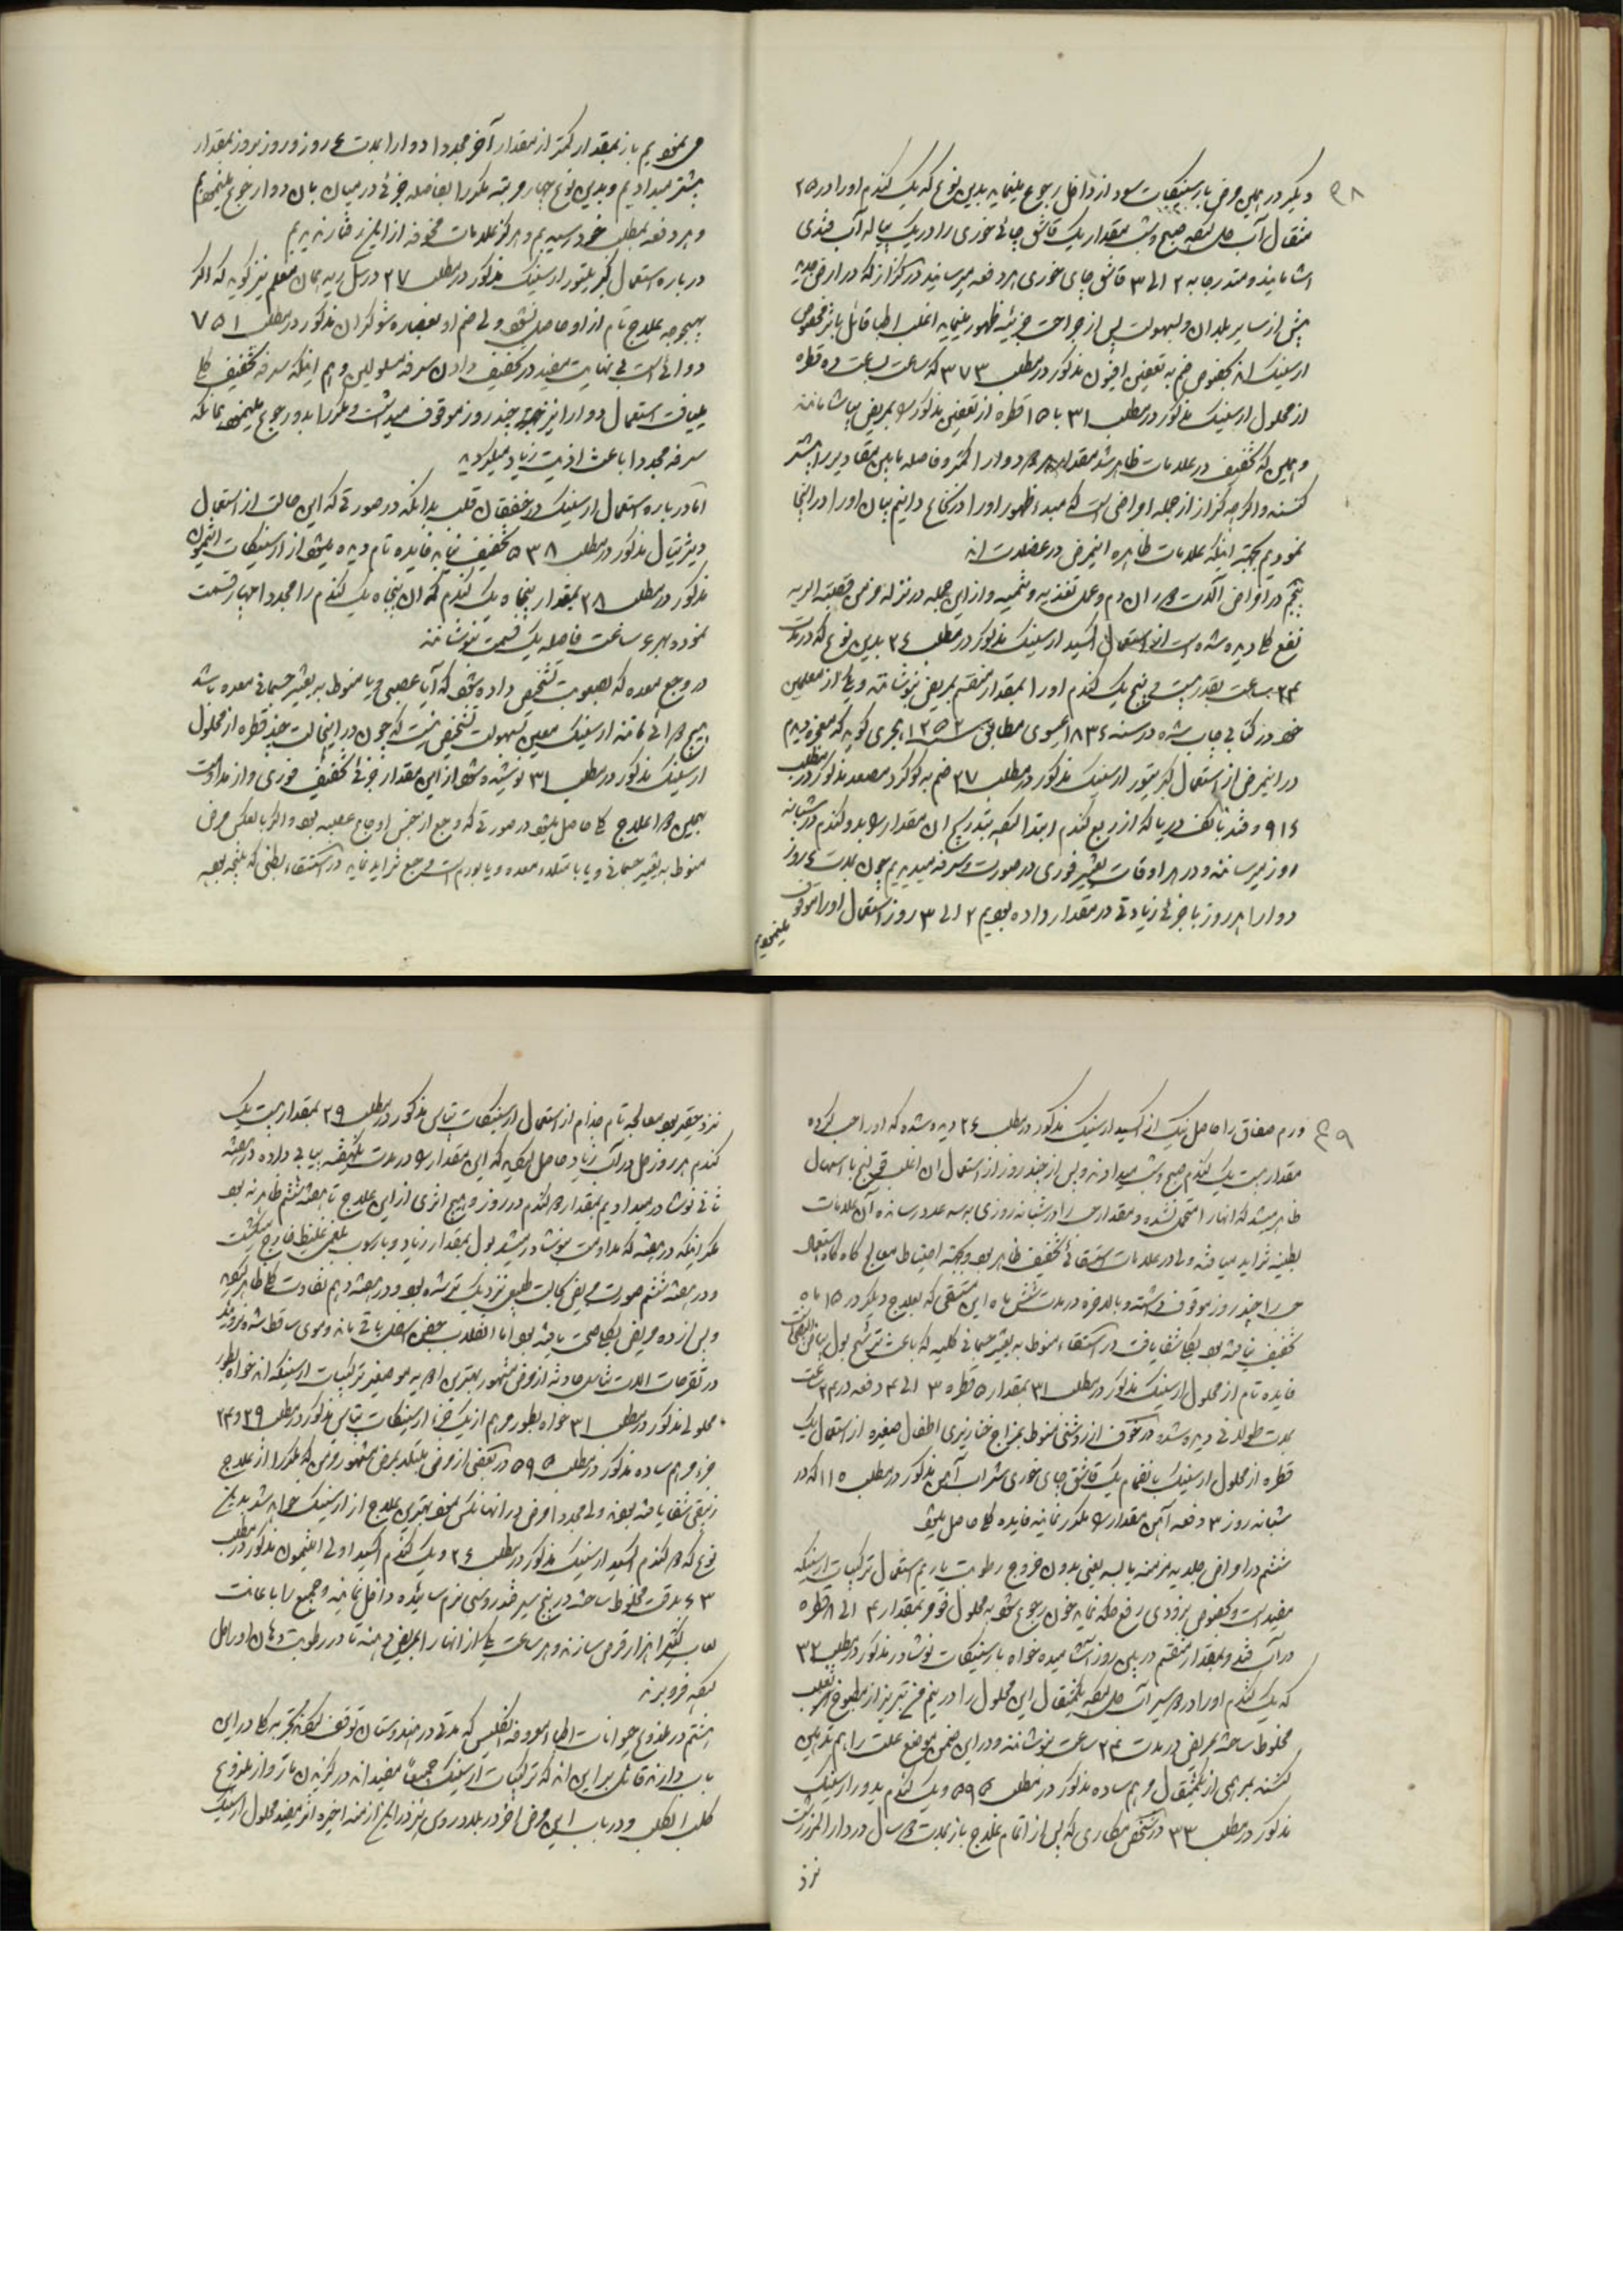 ۳۸
دیگر در همین مرض بارسنیکات سود از داخل رجوع مینماید بدین نوع که یک گندم اورا در ۲۵
مثقال آب حل کنقه صبح و شب بمقدار یک قاشق چائی خوری را در یک پیاله آب قندی
اشامانیده و متدرجا به ۲ الی ۳ قاشق چای خوری هر دفعه میرسانند در کزاز که در ارض
بیش از سایر بلدان و بسهولت پس از جراحت جزئیه ظهور مینماید اغلب اطبا قائل باثر مخصوص
ارسنیک اند بخصوص ضم به تعفین افیون مذکور در مطلب ۳۷۳ که ساعت بساعت ده قطره
از محلول ارسنیک مذکور در مطلب ۳۱ با ۱۵ قطره از تعفین مذکور را بمریض بیاشامانند
و همین که تخفیف در علامات ظاهر شد مقدار دوا را کمتر و فاصله مابین مقادیر را بیشتر
کنند و اگرچه کزاز از جمله امراضی است که مبداء ظهور اورا در نخاع دانیم بیان اورا در اینجا
نمودیم بجهته اینکه علامات ظاهره اینمرض در عضلات اند
پنجم در امراض آلات دوران دم و عمل تغذیه و تنمیه و از این جمله در نزله مزمن قصبته الریه
نفع کلی دیده شده است از استعمال اکسید ارسنیک مذکور در مطلب ۲۴ بدین نوع که در مدت
۲۴ ساعت بقدر بیست و پنج یک گندم اورا بمقدار منقسم بمریض بنوشانند و یکی از معلمین
خود در کتابی چاپ شده در سنه ۱۸۳۶ عیسوی مطابق ۱۲۵۲ هجری گوید که معجزه دیدم
در اینمرض از استعمال کبریتور ارسنیک مذکور در مطلب ۲۷ ضم به گوگرد مصعد مذکور در مطلب
۹۱۶ و قند یا کف دریا که از ربع گندم ابتدا کنقه بتدریج ان مقدار را بدو گندم در شبانه
روز میرسانند و در هر اوقات تغییر فوری در صورت و سرفه میدیدیم چون بمدت ۴ روز
دوا را هر روز با جزئی زیادتی در مقدار داده بودیم ۲ الی ۳ روز استعمال اورا موقوف
مینمودیم
می نمودیم باز بمقدار کمتر از مقدار آخر مجددا دوا را بمدت ۴ روز و روز بروز بمقدار
بیشتر میدادیم و بدین نوع چهار مرتبه مکررا بفاصله جزئی در میان بان دوا رجوع مینمودیم
و هر دفعه بمطلب خود رسیدیم و هرگز علامات مخوفه از این رفتار ندیدیم
درباره استعمال کبریتور ارسنیک مذکور در مطلب ۲۷ در سل ریه همان معلم نیز گوید که اگر
بهیچوجه علاج تام از او حاصل نشود ولی ضم او بعصاره شوکران مذکور در مطلب ۷۵۱
دوائی است بی نهایت مفید در تخفیف دادن سرفه مسلولین و هم اینکه سرفه تخفیف کلی
مییافت استعمال دوا را نیز چند روز موقوف میداشت و مکررا بدو رجوع مینمود مادامیکه
سرفه مجددا باعث اذیت زیاد میگردید
اما درباره استعمال ارسنیک در خفقان قلب بدانکه در صورتی که این حالت از استعمال
دیژیتال مذکور در مطلب ۵۳۸ تخفیف نیابد فایده تام دیده میشود از ارسنیکات انتیموان
مذکور در مطلب ۳۸ بمقدار پنجاه یک گندم که ان پنجاه یک گندم را مجددا چهار قسمت
نموده بهر ۶ ساعت فاصله یک قسمت بنوشانند
در وجع معده که بصعوبت تشخیص داده شود که آیا عصبی و یا منوط به تغییر جسمانی معده باشد
هیچ دوائی مانند ارسنیک معین سهولت تشخیص نیست که چون در اینحالت چند قطره از محلول
ارسنیک مذکور در مطلب ۳۱ نوشیده شود از این مقدار جزئی تخفیف فوری و از مداومت
بهمین دوا علاج کلی حاصل میشود در صورتی که وجع از جنس اوجاع عصبیه بود و اگر بالعکس مرض
منوط به تغییر جسمانی و یا بامتلاء معده و یا بورم است وجع تزاید نماید در استسقاء بطنی که نتیجه بود
۳۹
ورم صفاق را حاصل نیک از اکسید ارسنیک مذکور در مطلب ۲۴ دیده شده که اورا حب کرده
مقدار بیست یک گندم صبح و شب میدادند و پس از چند روز از استعمال ان اغلب قی لنج یا اسهال
ظاهر میشد که انها را متحمل نشده و مقدار حب را در شبانه روزی به سه عدد رسانده آن علامات
بطنیه تزاید مییافته ولی در علامات استسقائی تخفیف ظاهر بود و بجهته احتیاط معالج گاه گاه استعمال
حب را چند روز موقوف داشته و بالاخره در مدت شش ماه این مستسقی که بعلاج دیگر در ۱۵ ماه
تخفیف نیافته بود بکلی شفا یافت در استسقاء منوط به تغییر جسمانی کلیه که باعث ترشح بول بیاض البیضی
فایده تام از محلول ارسنیک مذکور در مطلب ۳۱ بمقدار ۵ قطره ۳ الی ۴ دفعه در ۲۴ ساعت
بمدت طولانی دیده شده در خوف از روشنی منوط بمزاج خنازیری اطفال صغیره از استعمال یک
قطره از محلول ارسنیک بانضمام یک قاشق چای خوری شراب آهن مذکور در مطلب ۱۱۵ که در
شبانه روز ۳ دفعه آن مقدار را مکرر نمایند فایده کلی حاصل میشود
ششم در امراض جلدیه مزمنه یابسه یعنی بدون خروج رطوبت یا ریم استعمال ترکیبات ارسنیکه
مفید است و بخصوص بزودی رفع حکه نماید خون رجوع شود به محلول فوقی بمقدار ۴ الی ۸ قطره
در آب قند و بمقدار منقسم در یک روز آشامیده خواه بارسنیکات نوشادر مذکور در مطلب ۳۲
که یک گندم اورا در دو سیر آب حل کنقه یکمثقال این محلول را در نیم من تبریز از مطبوخ
مخلوط ساخته بمریض در مدت ۲۴ ساعت بنوشانند و در این ضمن موضع علت را هم تدهین
کنند بمرهمی از یکمثقال مرهم ساده مذکور در مطلب ۵۹۵ و یک گندم یدور ارسنیک
مذکور در مطلب ۳۳ در شخص مکاری که پس از اتمام علاج باز بمدت دو سال در دار المرز رشت
نزد
نزد حقیر بود معالجه تام جذام از استعمال ارسنیکات پتاس مذکور در مطلب ۲۹ بمقدار بیست یک
گندم هر روز حل در آب زیاد حاصل کردید که این مقدار را در مدت یکهفته بیابی داده در هفته
ثانی نوشادر میدادیم بمقدار دو گندم در روز و هیچ اثری از این علاج تا هفته ششم ظاهر نه بود
مگر اینکه در هفته که مداومت بنوشادر میشد بول بمقدار زیاد و با رسوب بلغمی غلیظ خارج میگشت
و در هفته ششم صورت مریض بحالت طبیعی نزدیک تر شده بود و در هفته دهم تفاوت کلی ظاهر کردید
و پس از ده مریض بکلی صحت یافته بود اما انقلاب جفن اسفل باقی ماند و موی ساقط شده نروئید
در تقرحات الات تناسل حادثه از مرض مشهور بهترین ادویه موضعیه ترکیبات ارسنیکه اند خواه بطور
محلولی مذکور در مطلب ۳۱ خواه بطور مرهم از یک جزء ارسنیکات پتاس مذکور در مطلب ۲۹ و ۲۴
جزء مرهم ساده مذکور در مطلب ۵۹۵ در بعضی از مرضی مبتلا بمرض مشهور مزمن که مکررا از علاج
زیبقی شفا یافته بودند ولی مجددا مرض در انها نکس نمود بهترین علاج از ارسنیک حاصل شد بدین
نوع که دو گندم اکسید ارسنیک مذکور در مطلب ۲۴ و یک گندم اکسید اولی انتیمون مذکور در مطلب
۴۳ بدقت مخلوط ساخته در پنج سیر قند روسی نرم سائیده داخل نمایند و جمیع را باعانت
لعاب کتیرا هزار قرص سازند و هر ساعت یکی از انها را بمریض دهند تا در رطوبت دهان اورا حل
کنقه فرو برند
هفتم در ملدوغ حیوانات اطباء معروفه انگلیس که مدتی در هندوستان توقف کنقه تجربه کلی در این
باب دارند قائل بر این اند که ترکیبات ارسنیک جمیعا مفید اند در گزیدن مار و از ملدوغ
کلب الکلب و در باب این مرض اخر در بلاد روس نیز در این ازمنه اخیره اثر مفید محلول ارسنیک